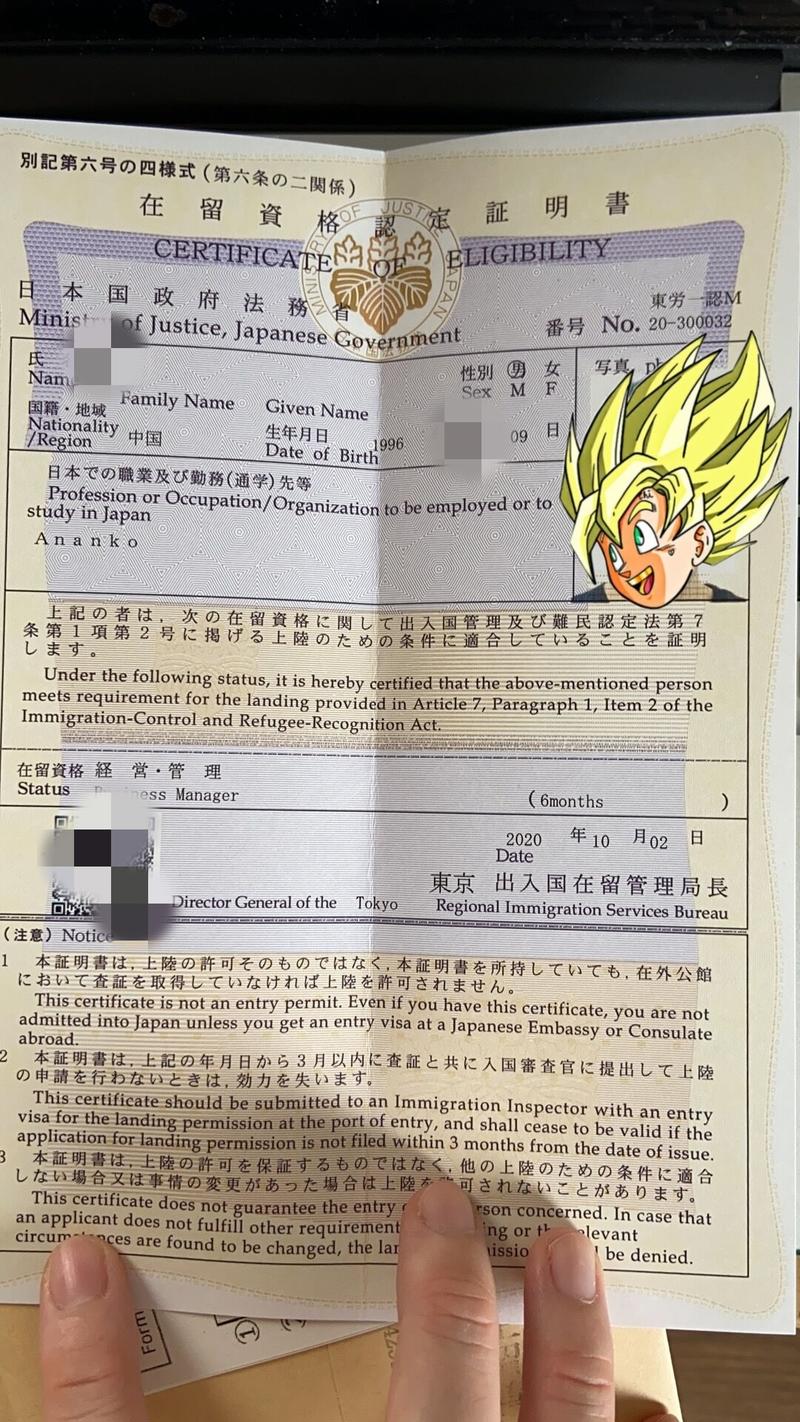 別記第六号の四様式(第六条の二関係)
在留資格認定証明書
CERTIFICATE OF ELIGIBILITY
MINISTRY OF JUSTICE JAPAN
日本国政府法務省
Ministry of Justice, Japanese Government
東労一認M
番号 No. 20-300032
氏
Name
Family Name Given Name
性別 男 女
Sex M F
写真
国籍・地域 中国
Nationality
/Region
生年月日 1996 09 日
Date of Birth
日本での職業及び勤務(通学)先等
Profession or Occupation/Organization to be employed or to
study in Japan
Ananko
上記の者は,次の在留資格に関して出入国管理及び難民認定法第7
条第1項第2号に掲げる上陸のための条件に適合していることを証明
します。
Under the following status, it is hereby certified that the above-mentioned person
meets requirement for the landing provided in Article 7, Paragraph 1, Item 2 of the
Immigration-Control and Refugee-Recognition Act.
在留資格 経営・管理
Status Manager
(6months )
2020 年 10 月 02 日
Date
東京 出入国在留管理局長
Director General of the Tokyo Regional Immigration Services Bureau
(注意) Notice
1 本証明書は,上陸の許可そのものではなく,本証明書を所持していても,在外公館
において査証を取得していなければ上陸を許可されません。
This certificate is not an entry permit. Even if you have this certificate, you are not
admitted into Japan unless you get an entry visa at a Japanese Embassy or Consulate
abroad.
2 本証明書は,上記の年月日から3月以内に査証と共に入国審査官に提出して上陸
の申請を行わないときは,効力を失います。
This certificate should be submitted to an Immigration Inspector with an entry
visa for the landing permission at the port of entry, and shall cease to be valid if the
application for landing permission is not filed within 3 months from the date of issue.
3 本証明書は,上陸の許可を保証するものではなく,他の上陸のための条件に適合
しない場合又は事情の変更があった場合は上陸を許可されないことがあります。
This certificate does not guarantee the entry concerned. In case that
an applicant does not fulfill other requirement or the relevant
are found to be changed, the be denied.
Form
①